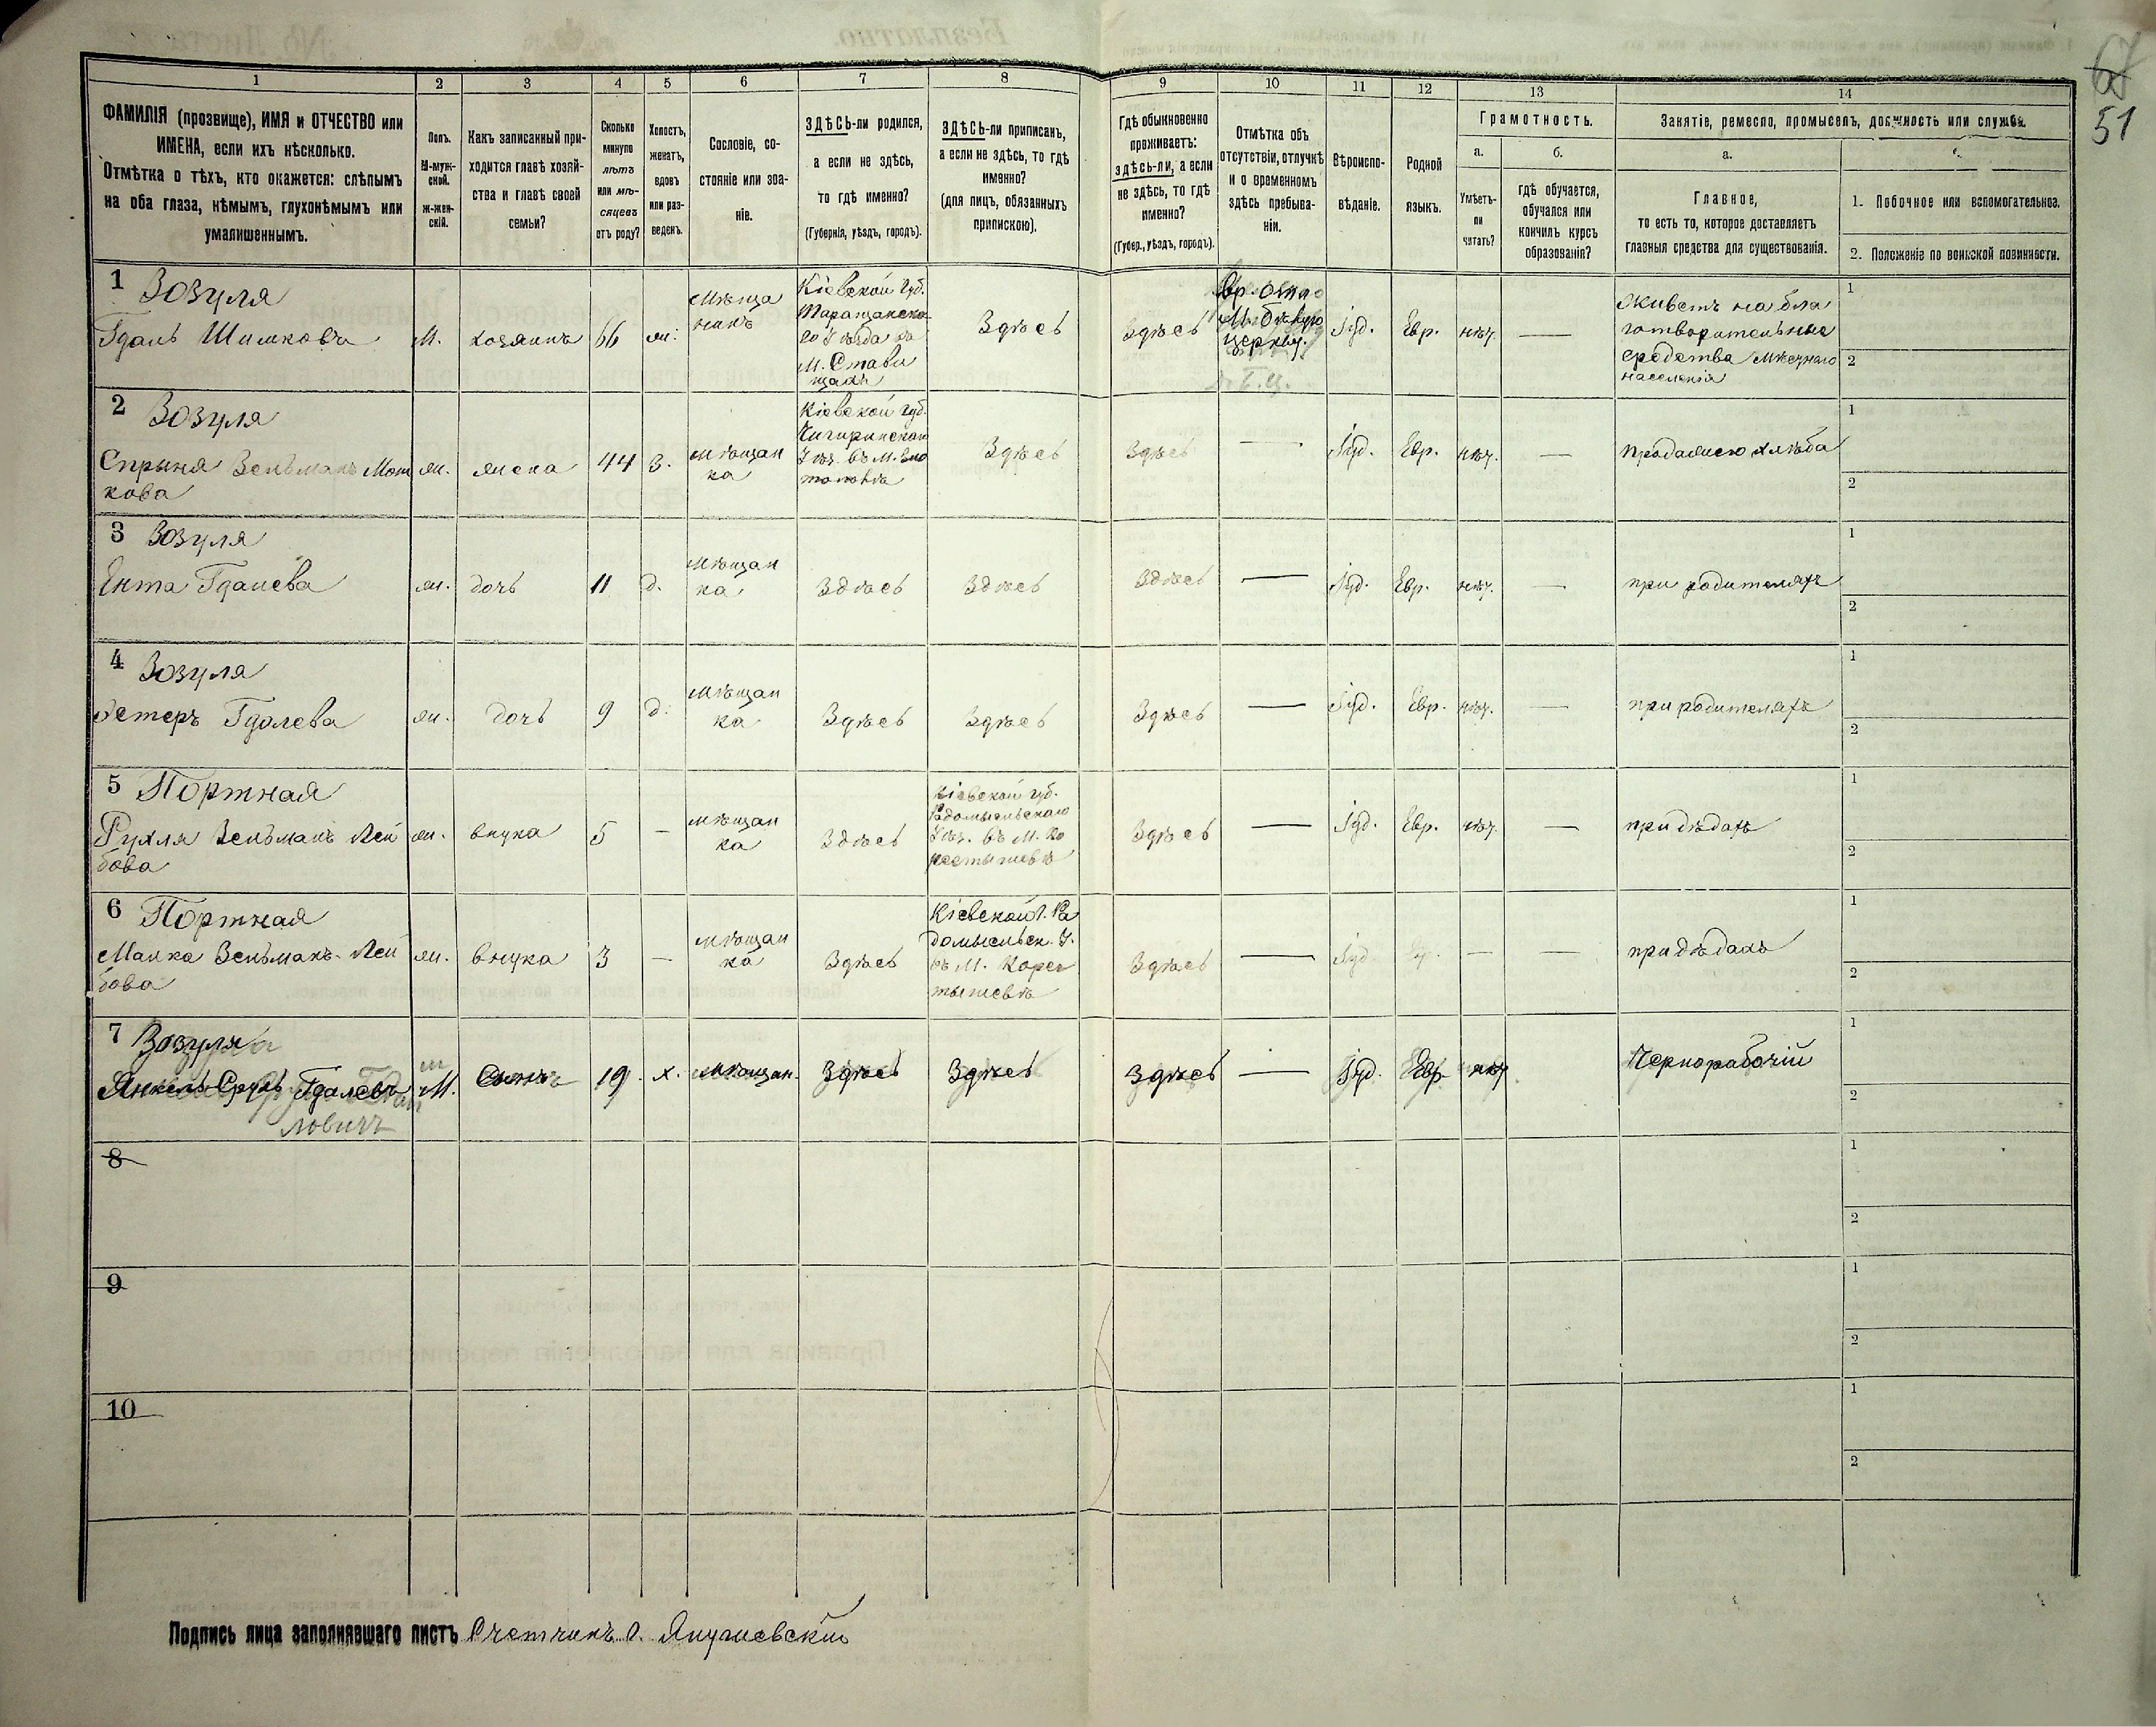 67
51
1
2
3
4
5
6
7
8
9
10
11
12
13
14
ФАМИЛІЯ (прозвище), ИМЯ и ОТЧЕСТВО или
ИМЕНА, если ихъ нѣсколько.
Отмѣтка о тѣхъ, кто окажется: слѣпымъ
на оба глаза, нѣмымъ, глухонѣмымъ или
умалишеннымъ.
Полъ.
М-муж-
ской.
Ж-жен-
скій.
Какъ записанный при-
ходится главѣ хозяй-
ства и главѣ своей
семьи?
Сколько
минуло
лѣтъ
или мѣ-
сяцевъ
отъ роду?
Холостъ,
женатъ,
вдовъ
или раз-
веденъ.
Сословіе, со-
стояніе или зва-
ніе.
ЗДѢСЬ-ли родился,
а если не здѣсь,
то гдѣ именно?
(Губернія, уѣздъ, городъ).
ЗДѢСЬ-ли приписанъ,
а если не здѣсь, то гдѣ
именно?
(для лицъ, обязанныхъ
припискою).
Гдѣ обыкновенно
проживаетъ:
здѣсь-ли, а если
не здѣсь, то гдѣ
именно?
(Губер., уѣздъ, городъ).
Отмѣтка объ
отсутствіи, отлучкѣ
и о временномъ
здѣсь пребыва-
ніи.
Вѣроиспо-
вѣданіе.
Родной
языкъ.
Грамотность.
а.
Умѣетъ-
ли
читать?
б.
гдѣ обучается,
обучался или
кончилъ курсъ
образованія?
Занятіе, ремесло, промыселъ, должность или служба.
а.
Главное,
то есть то, которое доставляетъ
главныя средства для существованія.
1. Побочное или вспомогательное.
2. Положеніе по воинской повинности.
1 Зозуля
Гдаль Шимковъ
М.
хозяинъ
66
ж.
Мѣща
нинъ
Кіевской Губ.
Таращанска
го Уѣзда въ
М. Стави
щахъ
Здѣсь
Здѣсь
Вр. отл.
М. Бѣлую
Церковь.
Іуд.
Евр.
нѣт.
Живетъ на бла
готворительные
средства Мѣстнаго
населенія
1
2
2 Зозуля
Спрыня Зельманъ Мош
кова
ж.
жена
44
З.
мѣщан
ка
Кіевской Губ.
Чигиринскаго
Уѣз. въ М. Зло
тополѣ
Здѣсь
Здѣсь
—
Іуд.
Евр.
нѣт.
—
продажею хлѣба
1
2
3 Зозуля
Ента Гдалева
ж.
дочь
11
д.
мѣщан
ка
Здѣсь
Здѣсь
Здѣсь
—
Іуд.
Евр.
нѣт.
—
при родителяхъ
1
2
4 Зозуля
Эстеръ Гдалева
ж.
дочь
9
д.
Мѣщан
ка
Здѣсь
Здѣсь
Здѣсь
—
Іуд.
Евр.
нѣт.
—
при родителяхъ
1
2
5 Портная
Рухля Зельманъ Лей
бова
ж.
внука
5
—
мѣщан
ка
Здѣсь
Кіевской губ.
Радомысльскаго
Уѣз. въ М. Ко
ростышевѣ
Здѣсь
—
Іуд.
Евр.
нѣт.
—
при дѣдахъ
1
2
6 Портная
Малка Зельманъ-Лей
бова
ж.
внука
3
—
мѣщан
ка
Здѣсь
Кіевской Г. Ра
домысльск. У.
въ М. Корос
тышевѣ
Здѣсь
—
Іуд.
Евр.
—
—
при дѣдахъ
1
2
7 Зозуля
Янкель-Сруль Гдалевъ
ловичъ
М.
Сынъ
19.
х.
мѣщан.
Здѣсь
Здѣсь
Здѣсь
—
Іуд.
Евр.
нѣт
Чернорабочій
1
2
8
1
2
9
1
2
10
1
2
Подпись лица заполнявшаго листъ Счетчикъ